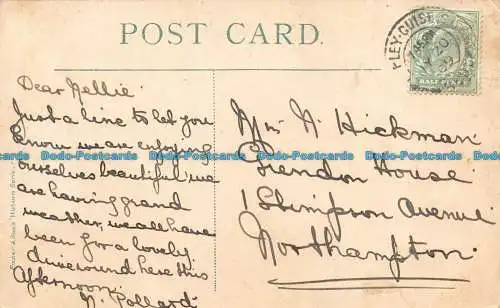 POST CARD.
PLEY-GUISE
HALF PENNY
Dear Nellie.
Just a line to let you
know we are enjoying
ourselves beautiful we
are having grand
weather, we all have
been for a lovely
drive round here this
Afternoon.
N. Pollard.
Miss N. Hickman.
Grendon House
1 Stimpson Avenue
Northampton.
Dodo-Postcards Dodo-Postcards Dodo-Postcards Dodo-Postcards Dodo-Postcards
Dodo-Postcards Dodo-Postcards Dodo-Postcards Dodo-Postcards Dodo-Postcards